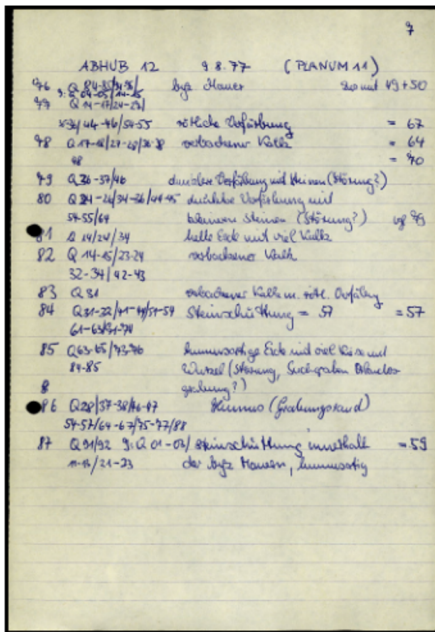 7
ABHUB 12 9.8.77 (PLANUM 11)
76 byz. Mauer 49+50
77 Q 14-17/24-27/
44-46/54-55 rötliche Verfärbung = 67
78 Q 17-18/27-28/36-38 verbackener Kalk = 64
48 = 70
79 Q 36-37/46 dunklere Verfärbung mit Steinen (Störung?)
80 Q 24-26/34-36/44-45 dunklere Verfärbung mit
54-55/64 kleinen Steinen (Störung?)
81 Q 14/24/34 helle Erde mit viel Kalk
82 Q 14-15/23-24 verbackener Kalk
32-34/42-43
83 Q 31 verbackener Kalk m. rötl. Verfärbung
84 Q 21-22/31-41/51-54 Steinschüttung = 57 = 57
61-63/
85 Q 63-65/73-76 humusartige Erde mit viel und
84-85 Wurzel (Störung, Suchgraben
grabung?)
86 Q 28/37-38/46-47 Humus (Grabungsrand)
54-57/64-67/75-77/88
87 Q 91/92 9: Q 01-02/ Steinschüttung innerhalb = 59
11-13/21-23 der byz. Mauern, humusartig